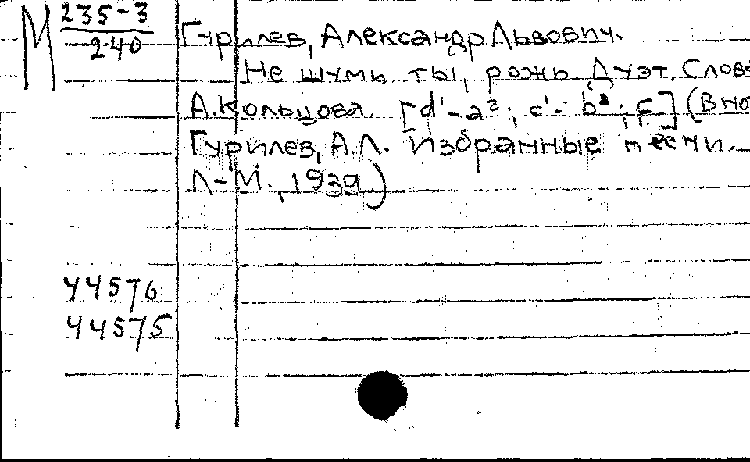 М 235-3
240
Гурилев, Александр Львович.
Не шуми ты, рожь. Дуэт. Слова
А. Кольцова. [d'-a²; c'-b²; F] (В но
Гурилев, А.Л. Избранные песни.
Л-М., 1939)
44576
44575